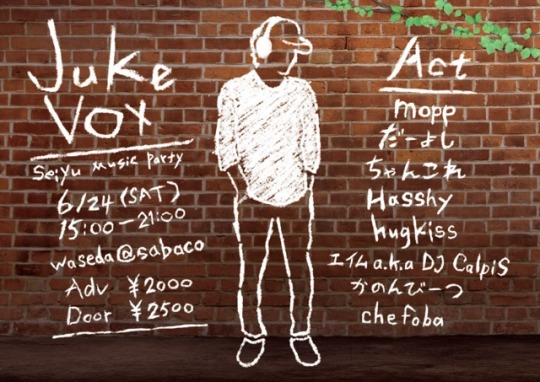 Juke
Vox
Seiyu music party
6/24 (SAT)
15:00-21:00
waseda@sabaco
Adv ¥2000
Door ¥2500
Act
mopp
だーよし
ちゃんこれ
Hasshy
hugkiss
エイム a.k.a DJ CalpiS
かのんびーつ
chefoba